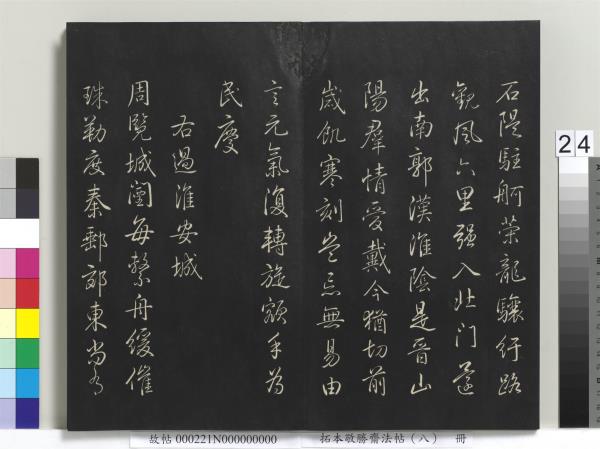 石隄駐舸荣龍驤行路
観風六里强入北门還
出南郭漢淮陰是晉山
陽羣情愛戴今猶切前
歲飢寒刻豈忘無易由
言元氣復轉旋額手為
民慶
右過淮安城
周覽城闉每繫舟緩催
珠勒度秦郵郊東尚有
24
故帖 000221N000000000 拓本敬勝齋法帖（八） 冊